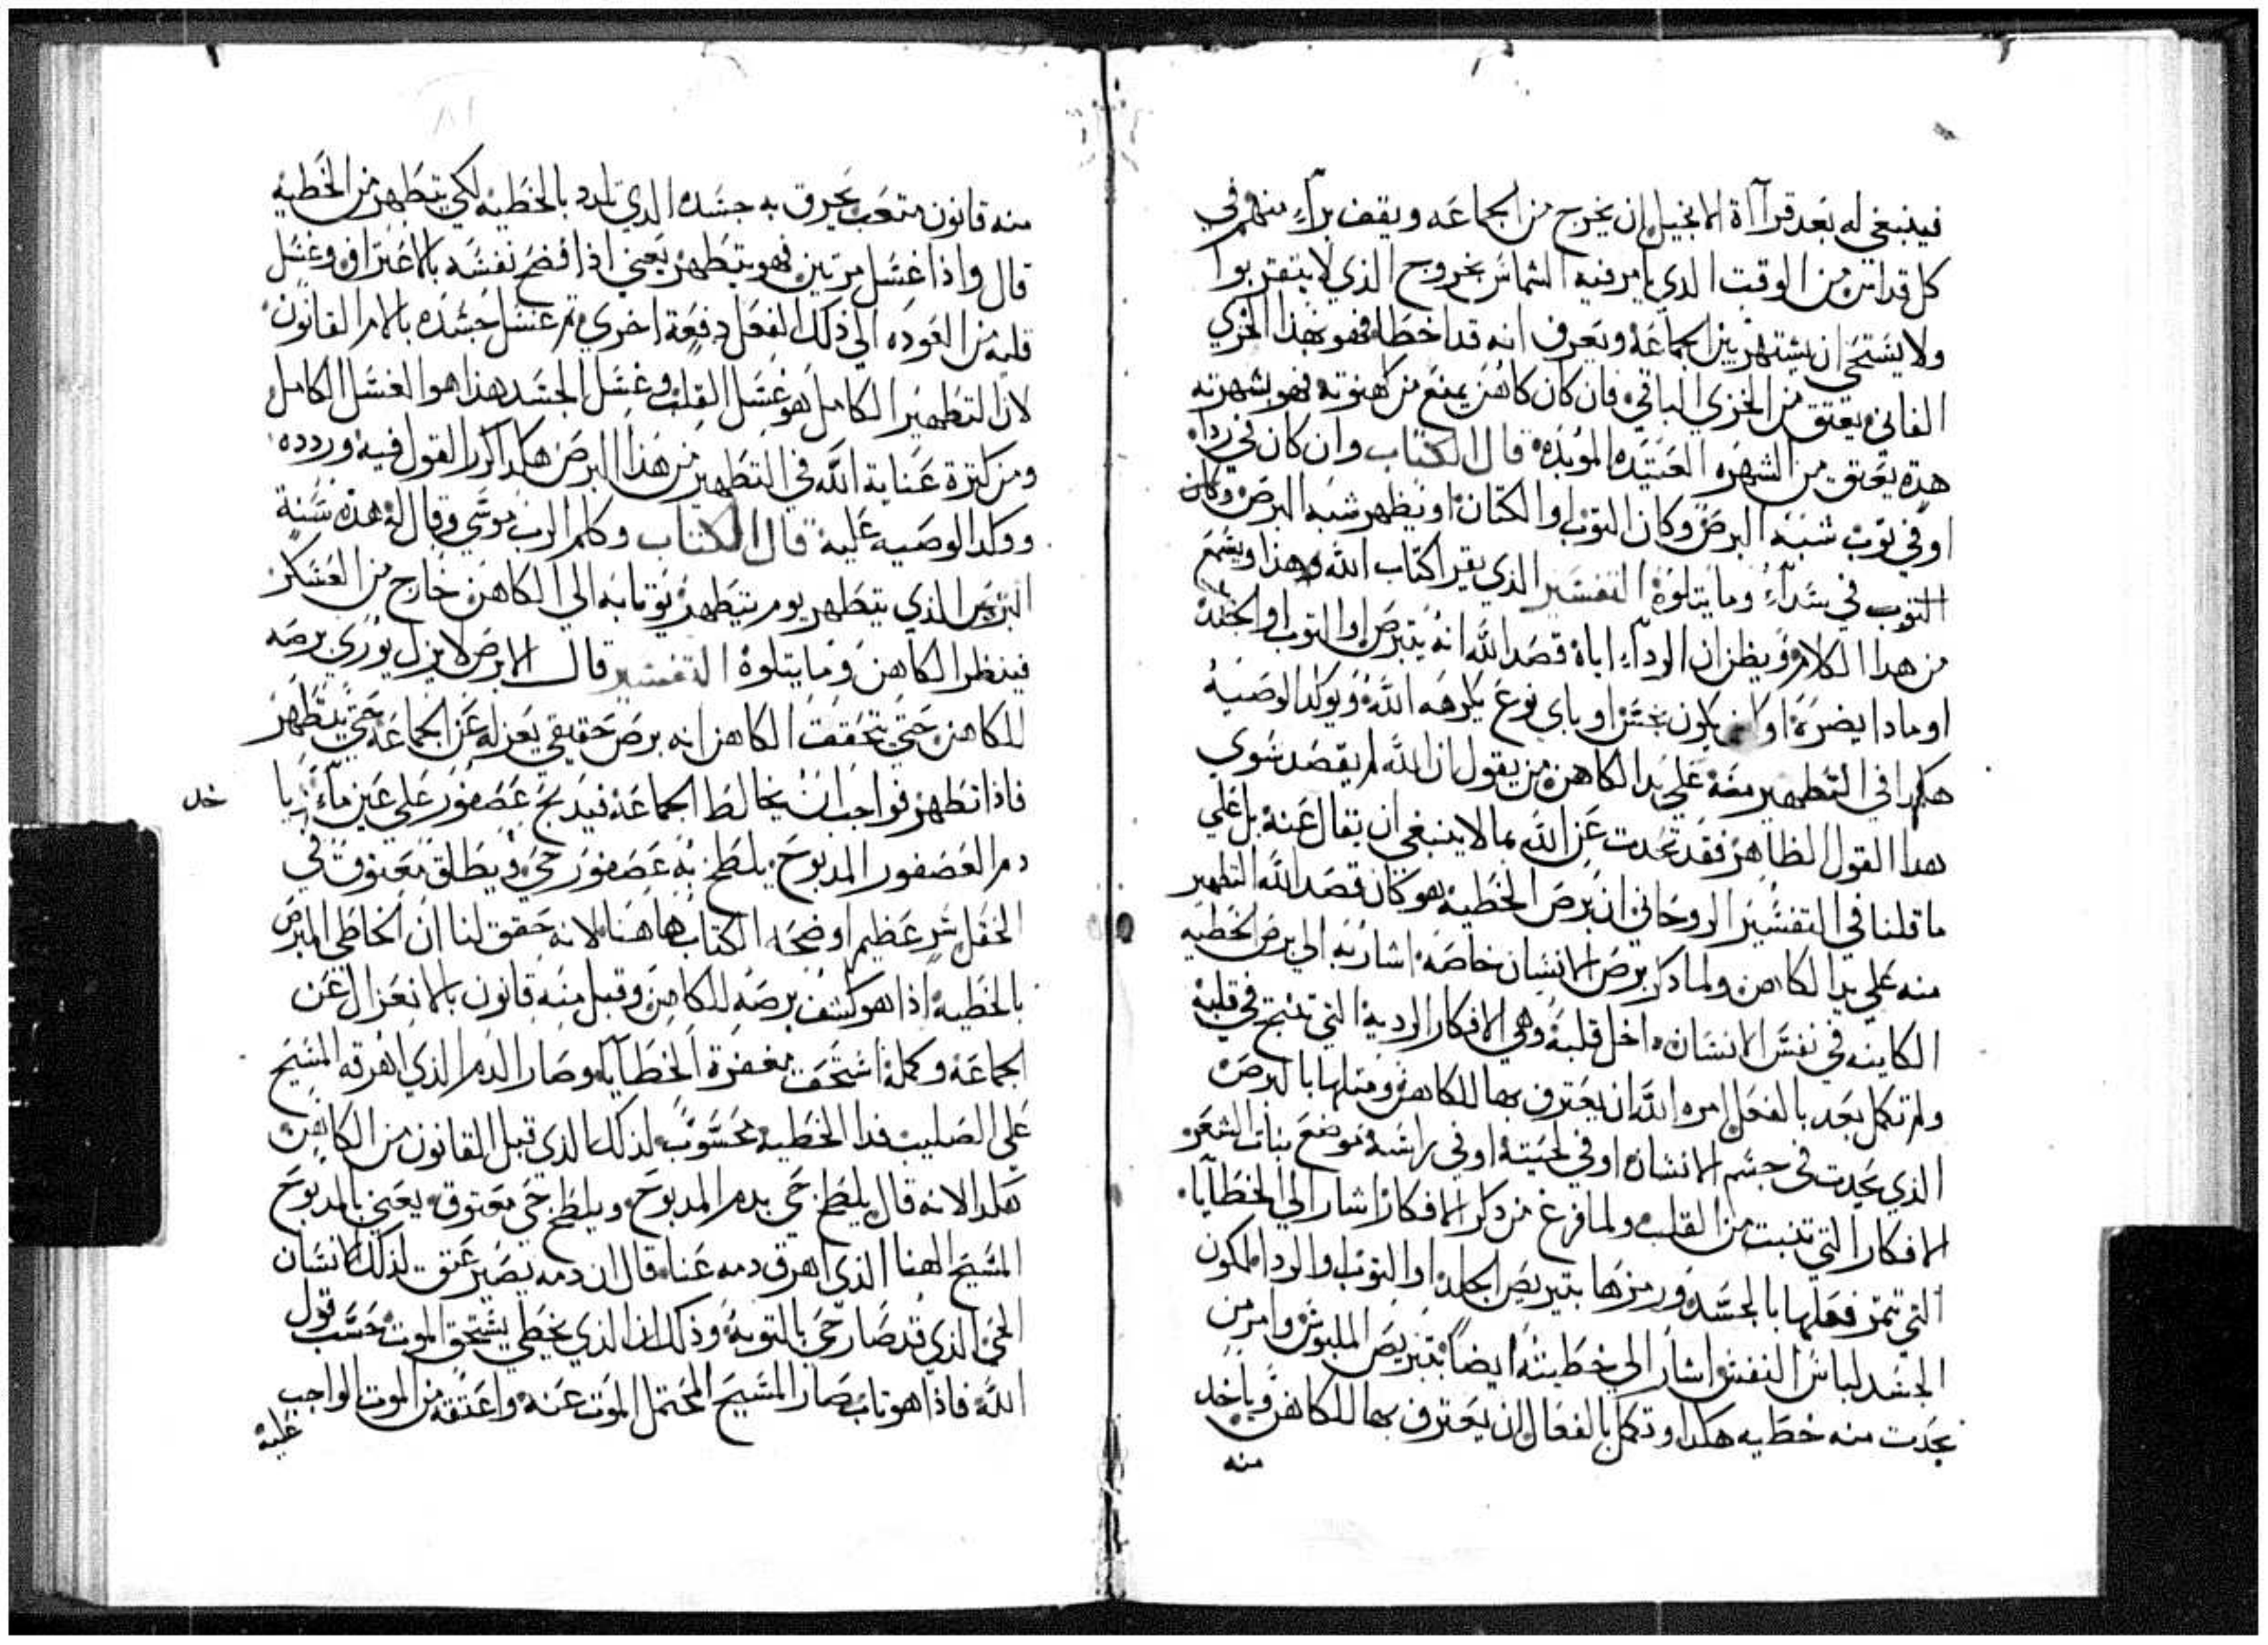 فينبغي له بعد قرآاة الانجيل ان يخرج من الجماعه ويقف برآء منهم في
كل قداس من الوقت الدي يامر فيه الشماس بخروج الذي لا يتقربوا
ولا يستحي ان يشتهر بين الجماعه ويعرف انه قد اخطا فهو بهدا الخزي
الفاني يعتق من الخزي الباقي فان كان كاهن يمنع من كهنوته فهو بشهرته
هده يعتق من الشهره العتيده الموبده قال الكتاب وان كان في ردا
او في توب شبه البرص وكان التوب او الكتان او يظهر شبه البرص وكان
التوب في سدآء وما يتلوه التفسير الذي يقرا كتاب الله هذا ويسمع
من هدا الكلام ويظن ان الردآء اياه قصد الله انه يتبرص او التوب او الجلد
او مادا يضره او ان يكون نجس او باي نوع يكرهه الله ويوكد الوصيه
هكدا في التطهير منه علي يد الكاهن من يقول ان الله لم يقصد سوي
هدا القول الظاهر فقد تحدت عن الله بما لا ينبغي ان يقال عنه بل علي
ما قلنا في التفسير الروحاني ان برص الخطيه هو كان قصد الله التطهير
منه علي يد الكاهن ولما دكر برص الانسان خاصه اشار به الي برص الخطيه
الكاينه في نفس الانسان داخل قلبه وهي الافكار الرديه التي تنتج في قلبه
ولم تكمل بعد بالفعل امره الله ان يعترف بها للكاهن ومتلها بالبرص
الذي يحدت في جسم الانسان او في لحيته او في راسه موضع نبات الشعر
الافكار التي تنبت من القلب ولما فرغ من دكر الافكار اشار الي الخطايا
التي تتم فعلها بالجسد ورمزها بتبريص الجلد او التوب والردا لكون
الجسد لباس النفس اشار الي خطيته ايضا بتبريص الملبوس وامر من
يحدت منه خطيه هكدا وتكمل بالفعال ان يعترف بها للكاهن وياخد
منه
منه قانون متعب يحرق به جسده الدي تلدد بالخطيه لكي يتطهر من الخطيه
قال واذا غسل مرتين فهو يتطهر يعني اذا فضح نفسه بالاعتراف وغسل
قلبه من العوده الي ذلك الفعل دفعة اخري تم غسل جسده بالامر القانون
لان التطهير الكامل هو غسل القلب وغسل الجسد هذا هو الغسل الكامل
ومن كترة عناية الله في التطهير من هذا البرص هكدا كرر القول فيه وردده
ووكد الوصيه عليه قال الكتاب وكلم الرب موسي وقال له هذه سنة
البرص الذي يتطهر يوم يتطهر يوتا به الي الكاهن خارج من العسكر
فينظر الكاهن وما يتلوه التفسير قال الابرص لا يزل يوري برصه
للكاهن حتي يتحقق الكاهن انه برص حقيقي يعزله عن الجماعه حتي يتطهر
فاذا تطهر فواجب ان يخالط الجماعه فيدبح عصفور علي عين مآء
خل
دم العصفور المدبوح يلطخ به عصفور حي ويطلق معتوق في
الحقل سر عظيم اوضحه الكتاب هاهنا لانه حقق لنا ان الخاطي المبرص
بالخطيه اذا هو كشف برصه للكاهن وقبل منه قانون بالانعزال عن
الجماعه وكمله استحق مغفرة الخطايا وصار الدم الذي اهرقه المسيح
علي الصليب فدا الخطيه محسوب لذلك الذي قبل القانون من الكاهن
هكدا لانه قال يلطخ حي بدم المدبوح ويلطخ حي معتوق يعني بالمدبوح
المسيح الهنا الذي اهرق دمه عنا قال ان دمه يصير عتق لذلك الانسان
الحي الذي قد صار حي بالتوبه وذلك ان الذي يخطي يستحق الموت حسب قول
الله فاذا هو تاب صار المسيح المحتمل الموت عنه واعتقه من الموت الواجب
عليه